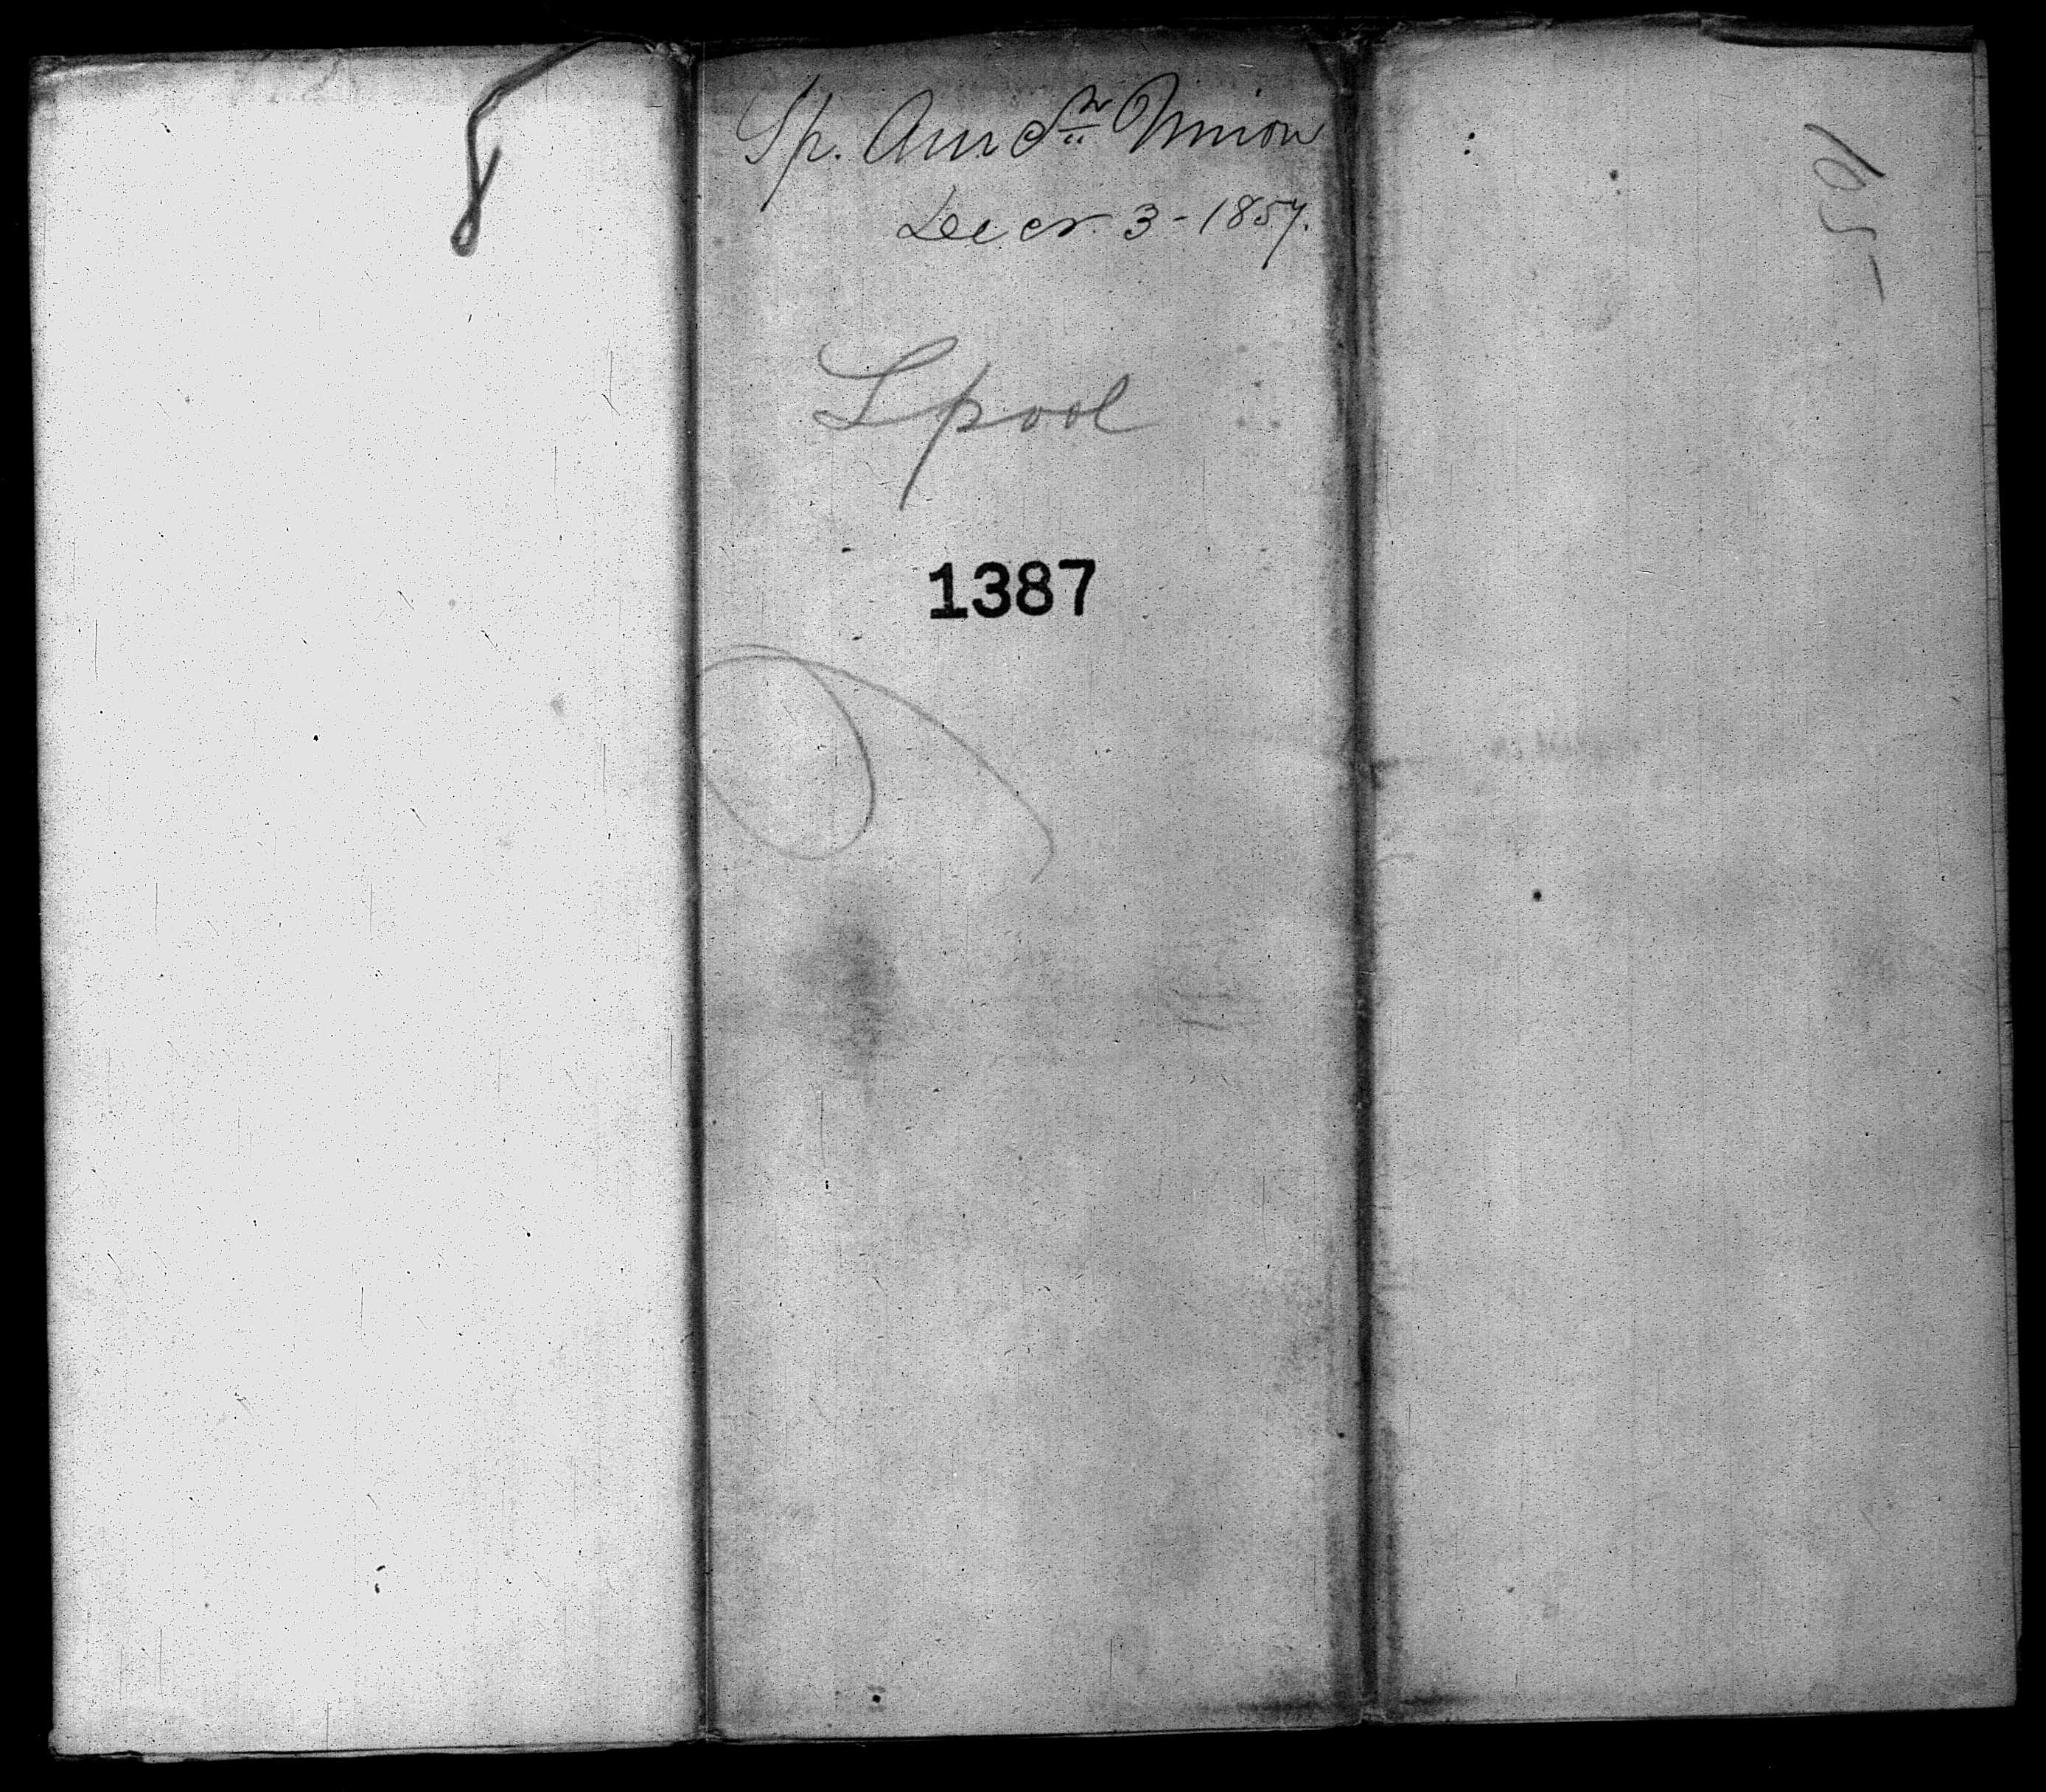 Sp. Am Sr. Minion
Decr. 3 - 1857.
Lpool
1387
105-